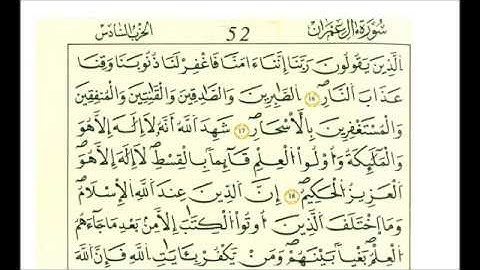 سُورَةُ آلِ عِمْرَانَ 52 الحزب السادس
الَّذِينَ يَقُولُونَ رَبَّنَا إِنَّنَا ءَامَنَّا فَاغْفِرْ لَنَا ذُنُوبَنَا وَقِنَا
عَذَابَ النَّارِ ١٦ الصَّٰبِرِينَ وَالصَّٰدِقِينَ وَالْقَٰنِتِينَ وَالْمُنفِقِينَ
وَالْمُسْتَغْفِرِينَ بِالْأَسْحَارِ ١٧ شَهِدَ اللَّهُ أَنَّهُ لَا إِلَٰهَ إِلَّا هُوَ
وَالْمَلَٰئِكَةُ وَأُوْلُواْ الْعِلْمِ قَائِمًا بِالْقِسْطِ لَا إِلَٰهَ إِلَّا هُوَ
الْعَزِيزُ الْحَكِيمُ ١٨ إِنَّ الدِّينَ عِندَ اللَّهِ الْإِسْلَٰمُ
وَمَا اخْتَلَفَ الَّذِينَ أُوتُواْ الْكِتَٰبَ إِلَّا مِنْ بَعْدِ مَا جَاءَهُمُ
الْعِلْمُ بَغْيًا بَيْنَهُمْ وَمَنْ يَكْفُرْ بِـَٔايَٰتِ اللَّهِ فَإِنَّ اللَّهَ